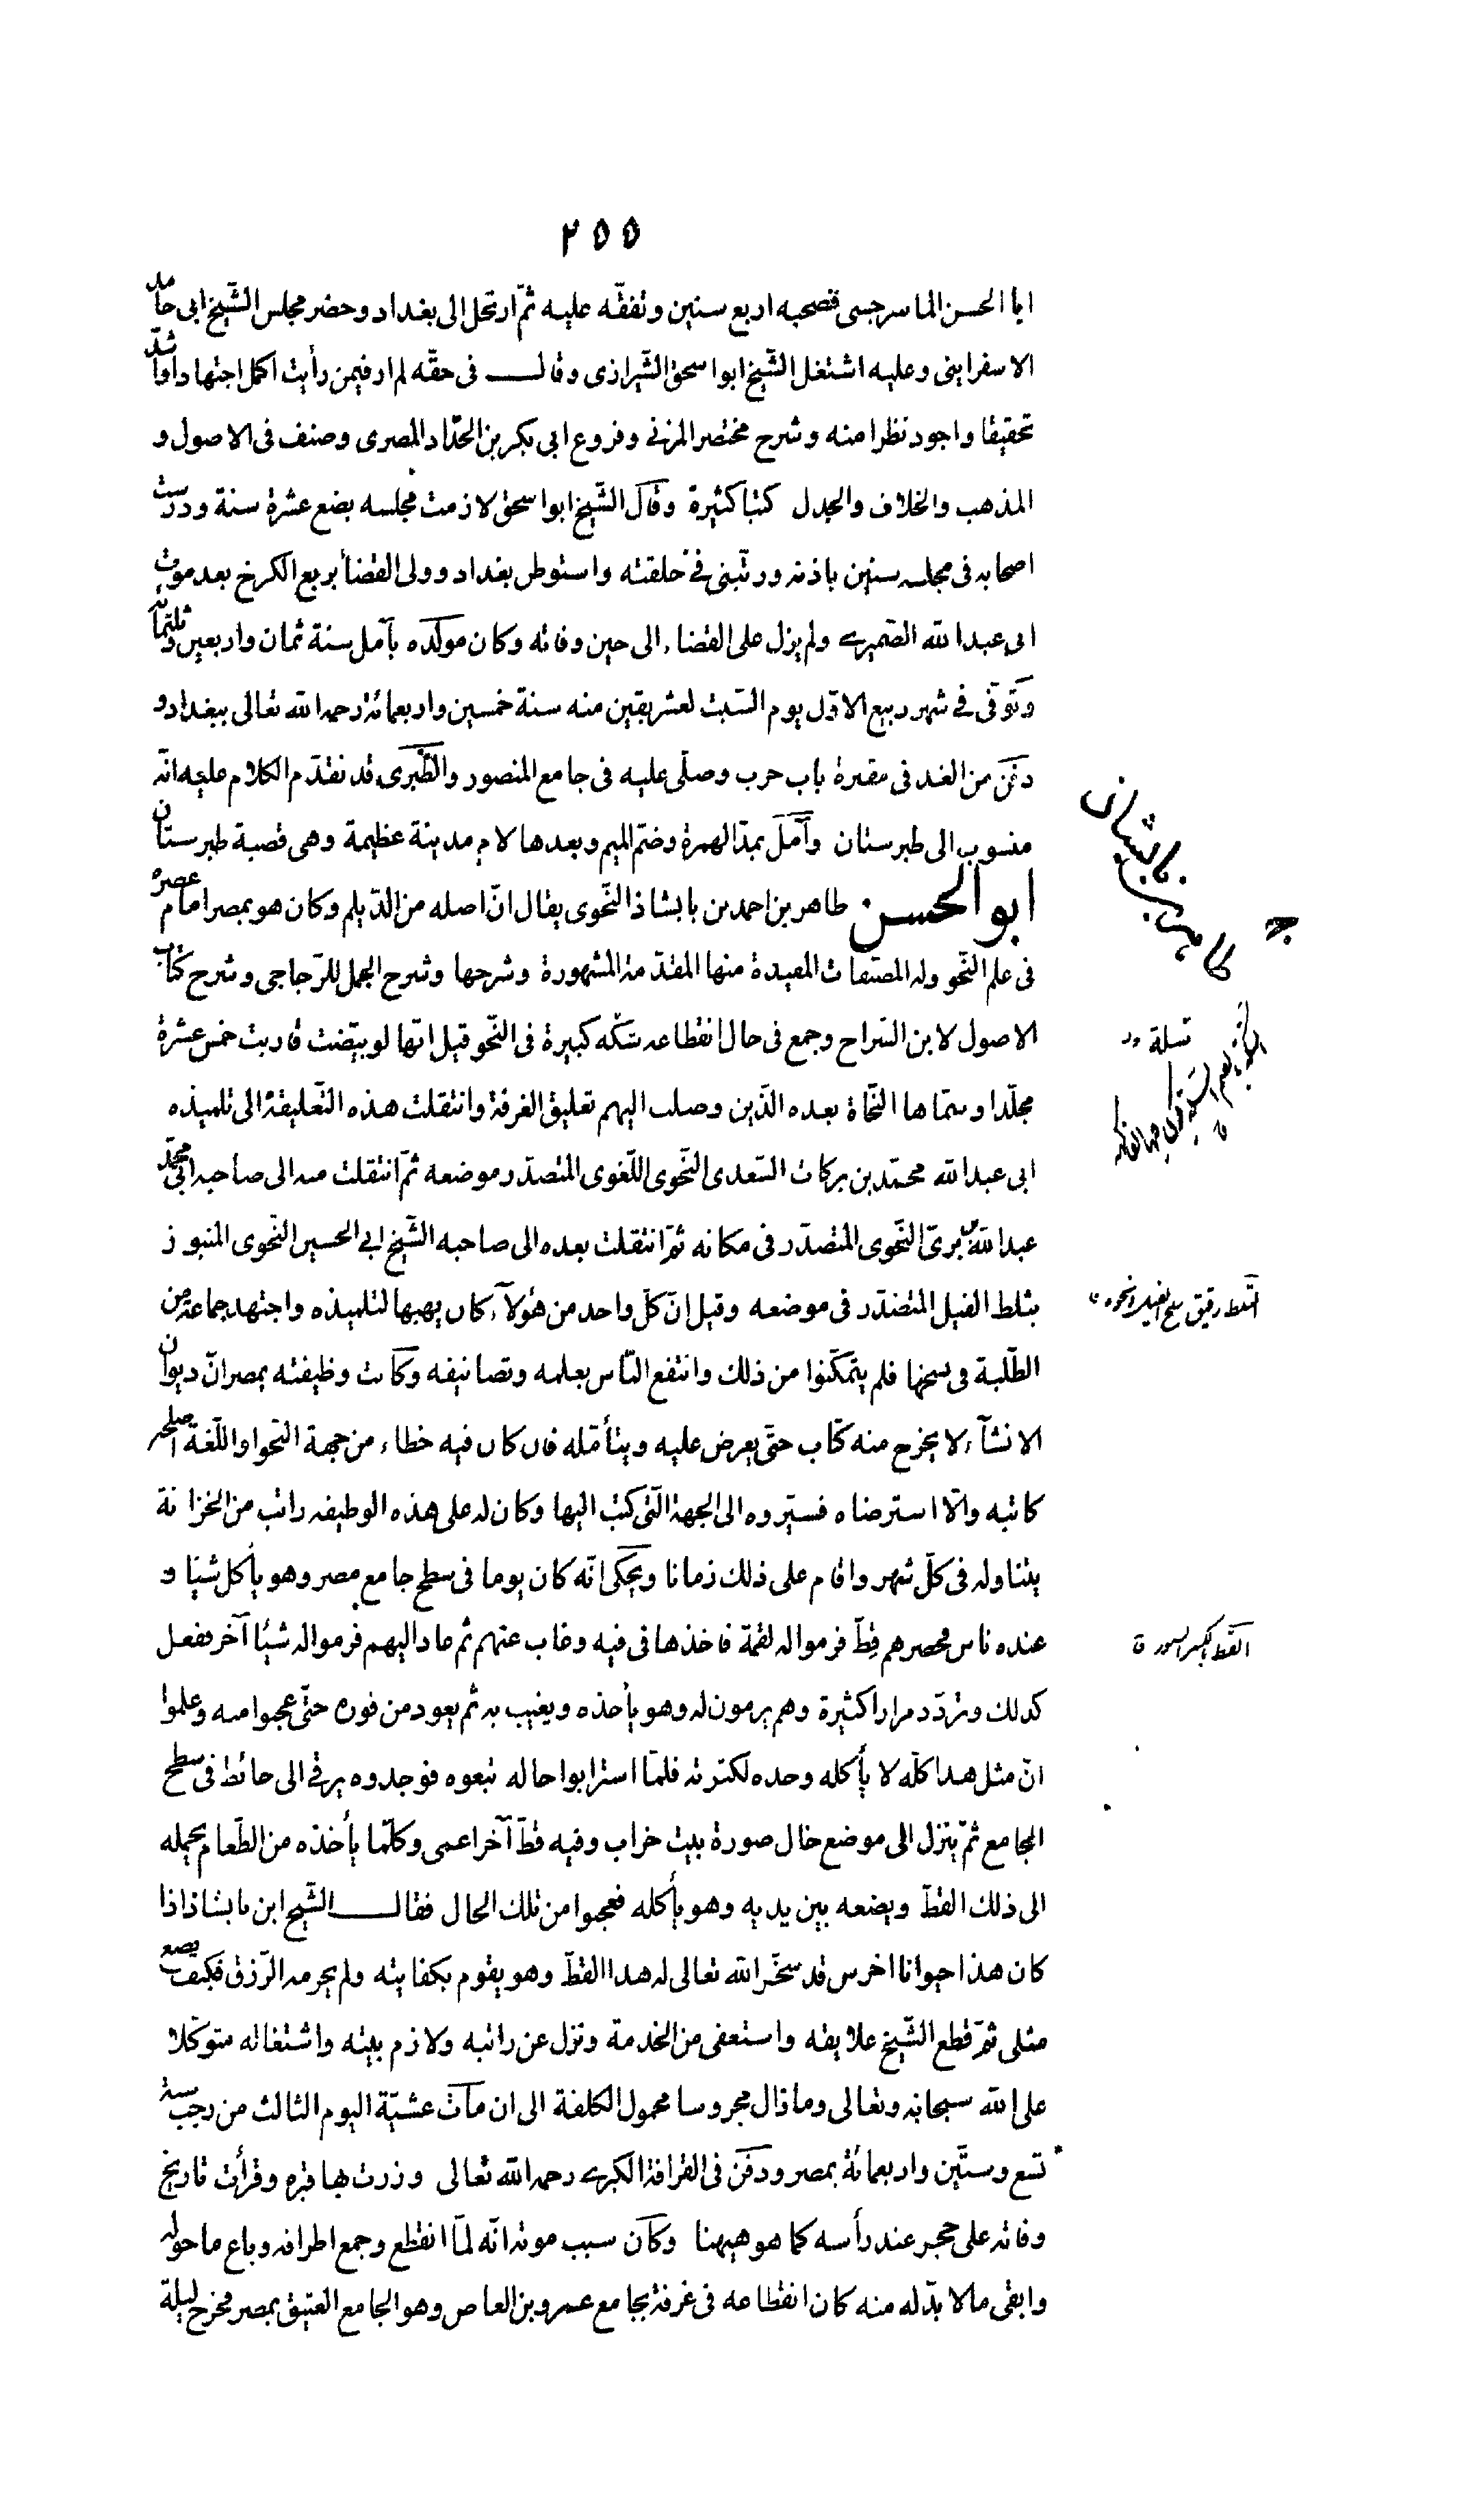 ٢٥٥
ابا الحسن الماسرجسى فصحبه اربع سنين وتفقّه عليه ثمّ ارتحل الى بغداد وحضر مجلس الشّيخ ابى حامد
الاسفراينى وعليه اشتغل الشّيخ ابو اسحق الشّيرازى وقال فى حقّه لم ار فيمن رأيت اكمل اجتهادا واشدّ
تحقيقا واجود نظرا منه وشرح مختصر المزنى وفروع ابى بكر بن الحدّاد المصرى وصنف فى الاصول و
المذهب والخلاف والجدل كتبا كثيرة وقال الشّيخ ابو اسحق لازمت مجلسه بضع عشرة سنة ودرّست
اصحابه فى مجلسه سنين باذنه ورتّبنى فى حلقته واستوطن بغداد وولى القضأ بربع الكرخ بعد موت
ابى عبد الله الصّميرى ولم يزل على القضاء الى حين وفاته وكان مولده بآمل سنة ثمان واربعين وثلثمائة
وتوفّى فى شهر ربيع الاوّل يوم السّبت لعشر بقين منه سنة خمسين واربعمائة رحمه الله تعالى ببغداد و
دفن من الغد فى مقبرة باب حرب وصلّى عليه فى جامع المنصور والطّبرى قد تقدّم الكلام عليه انّه
منسوب الى طبرستان وآمل بمدّ الهمزة وضمّ الميم وبعدها لام مدينة عظيمة وهى قصبة طبرستان
ابو الحسن طاهر بن احمد بن بابشاذ النّحوى يقال انّ اصله من الدّيلم وكان هو بمصر امام عصره
فى علم النّحو وله المصنّفات المفيدة منها المقدّمة المشهورة وشرحها وشرح الجمل للزّجاجى وشرح كتاب
الاصول لابن السّراج وجمع فى حال انقطاعه كبيرة فى النّحو قيل انّها لو بيّضت قاربت خمس عشرة
مجلّدا وسمّاها النّحاة بعده الّذين وصلت اليهم تعليق الغرفة وانتقلت هذه التّعليقة الى تلميذه
ابى عبد الله محمّد بن بركات السّعدى النّحوى اللّغوى المتصدّر موضعه ثمّ انتقلت منه الى صاحبه ابى محمّد
عبد الله بن برىّ النّحوى المتصدّر فى مكانه ثمّ انتقلت بعده الى صاحبه الشّيخ ابى الحسين النّحوى المنبوز
بثلط الفيل المتصدّر فى موضعه وقيل انّ كلّ واحد من هؤلآء كان يهبها لتلميذه واجتهد جماعة من
الطّلبة فى نسخها فلم يتمكّنوا من ذلك وانتفع النّاس بعلمه وتصانيفه وكانت وظيفته بمصر انّ ديوان
الانشآء لا يخرج منه كتاب حتّى يعرض عليه ويتأمّله فان كان فيه خطاء من جهة النّحو او اللّغة اصلحه
كاتبه والّا استرضاه فسيّروه الى الجهة الّتى كتب اليها وكان له على هذه الوظيفه راتب من الخزانة
يتناوله فى كلّ شهر واقام على ذلك زمانا ويحكى انّه كان يوما فى سطح جامع مصر وهو يأكل شيئا و
عنده ناس فحضرهم قطّ فرموا له لقمة فاخذها فى فيه وغاب عنهم ثم عاد اليهم فرموا له شيئا آخر ففعل
كذلك وتردّد مرارا كثيرة وهم يرمون له وهو يأخذه ويغيب به ثم يعود من فوره حتّى عجبوا منه وعلموا
انّ مثل هذا كلّه لا يأكله وحده لكثرته فلمّا استرابوا حاله تبعوه فوجدوه يرقى الى حائط فى سطح
الجامع ثمّ ينزل الى موضع خال صورة بيت خراب وفيه قطّ آخر اعمى وكلّما يأخذه من الطّعام يحمله
الى ذلك القطّ ويضعه بين يديه وهو يأكله فعجبوا من تلك الحال فقال الشّيخ ابن بابشاذ اذا
كان هذا حيوانا اخرس قد سخّر الله تعالى له هذا القطّ وهو يقوم بكفايته ولم يحرمه الرّزق فكيف يضيع
مثلى ثمّ قطع الشّيخ علايقه واستعفى من الخدمة ونزل عن راتبه ولازم بيته واشتغاله متوكّلا
على الله سبحانه وتعالى وما زال محروسا محمول الكلفة الى ان مات عشيّة اليوم الثالث من رجب سنة
تسع وستّين واربعمائة بمصر ودفن فى القرافة الكبرى رحمه الله تعالى وزرت بها قبره وقرأت تاريخ
وفاته على حجر عند رأسه كما هو ههنا وكان سبب موته انّه لمّا انقطع وجمع اطرافه وباع ما حوله
وابقى ما لا بدّ له منه كان انقطاعه فى غرفة بجامع عمرو بن العاص وهو الجامع العتيق بمصر فخرج ليلة
طاهر بن بابشاذ
الثلط رقيق سلح الفيل ونحوه
القط بالكسر السنور ق